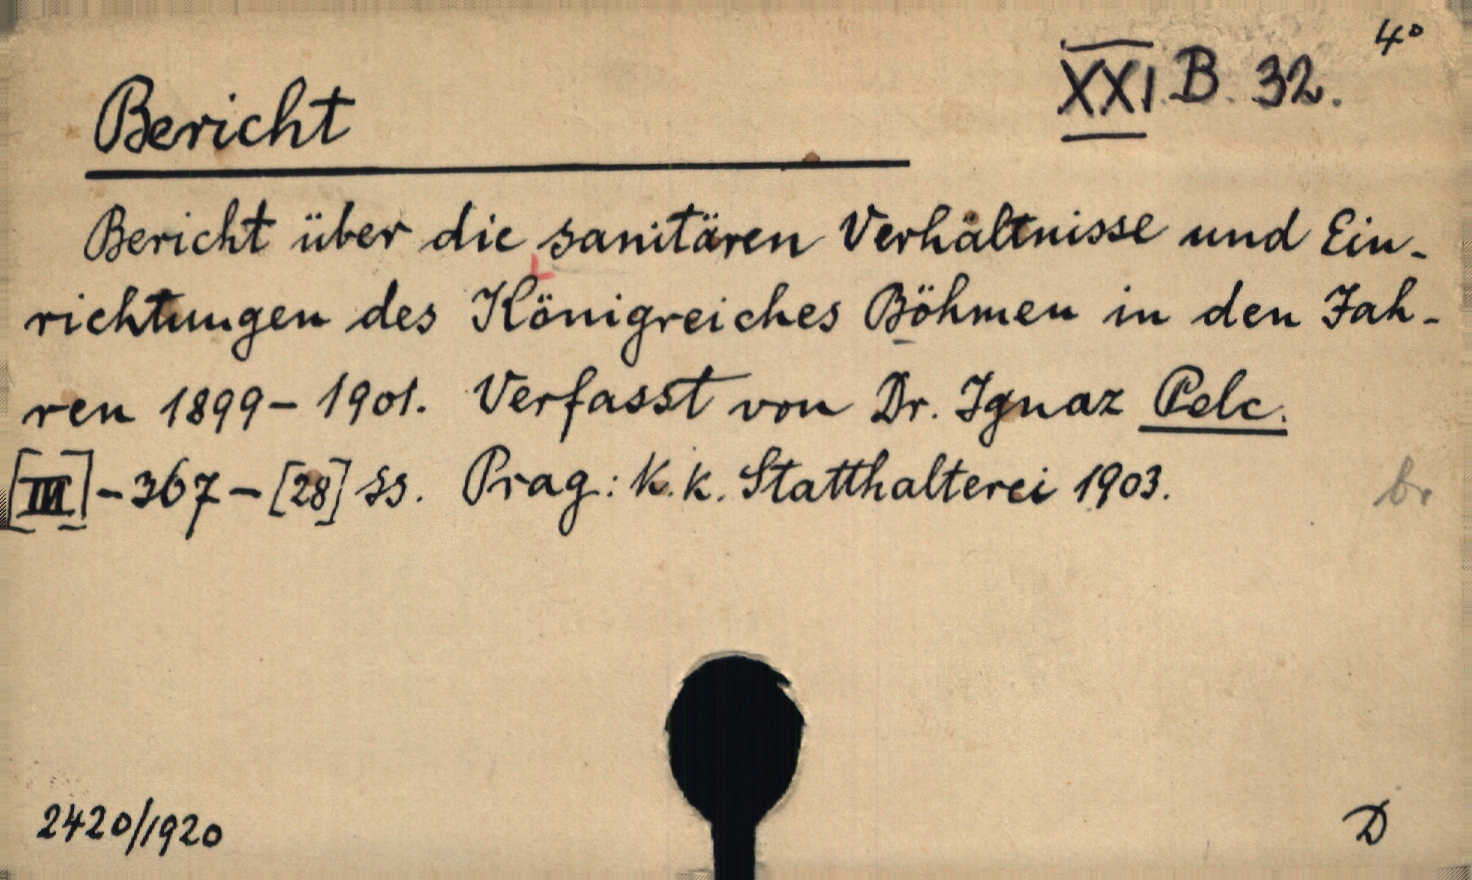 4°
XXI. B. 32.
Bericht
Bericht über die sanitären Verhältnisse und Ein-
richtungen des Königreiches Böhmen in den Jah-
ren 1899 – 1901. Verfasst von Dr. Ignaz Pelc.
[III] – 367 – [28] ss. Prag: K. k. Statthalterei 1903.
br
2420/1920
D